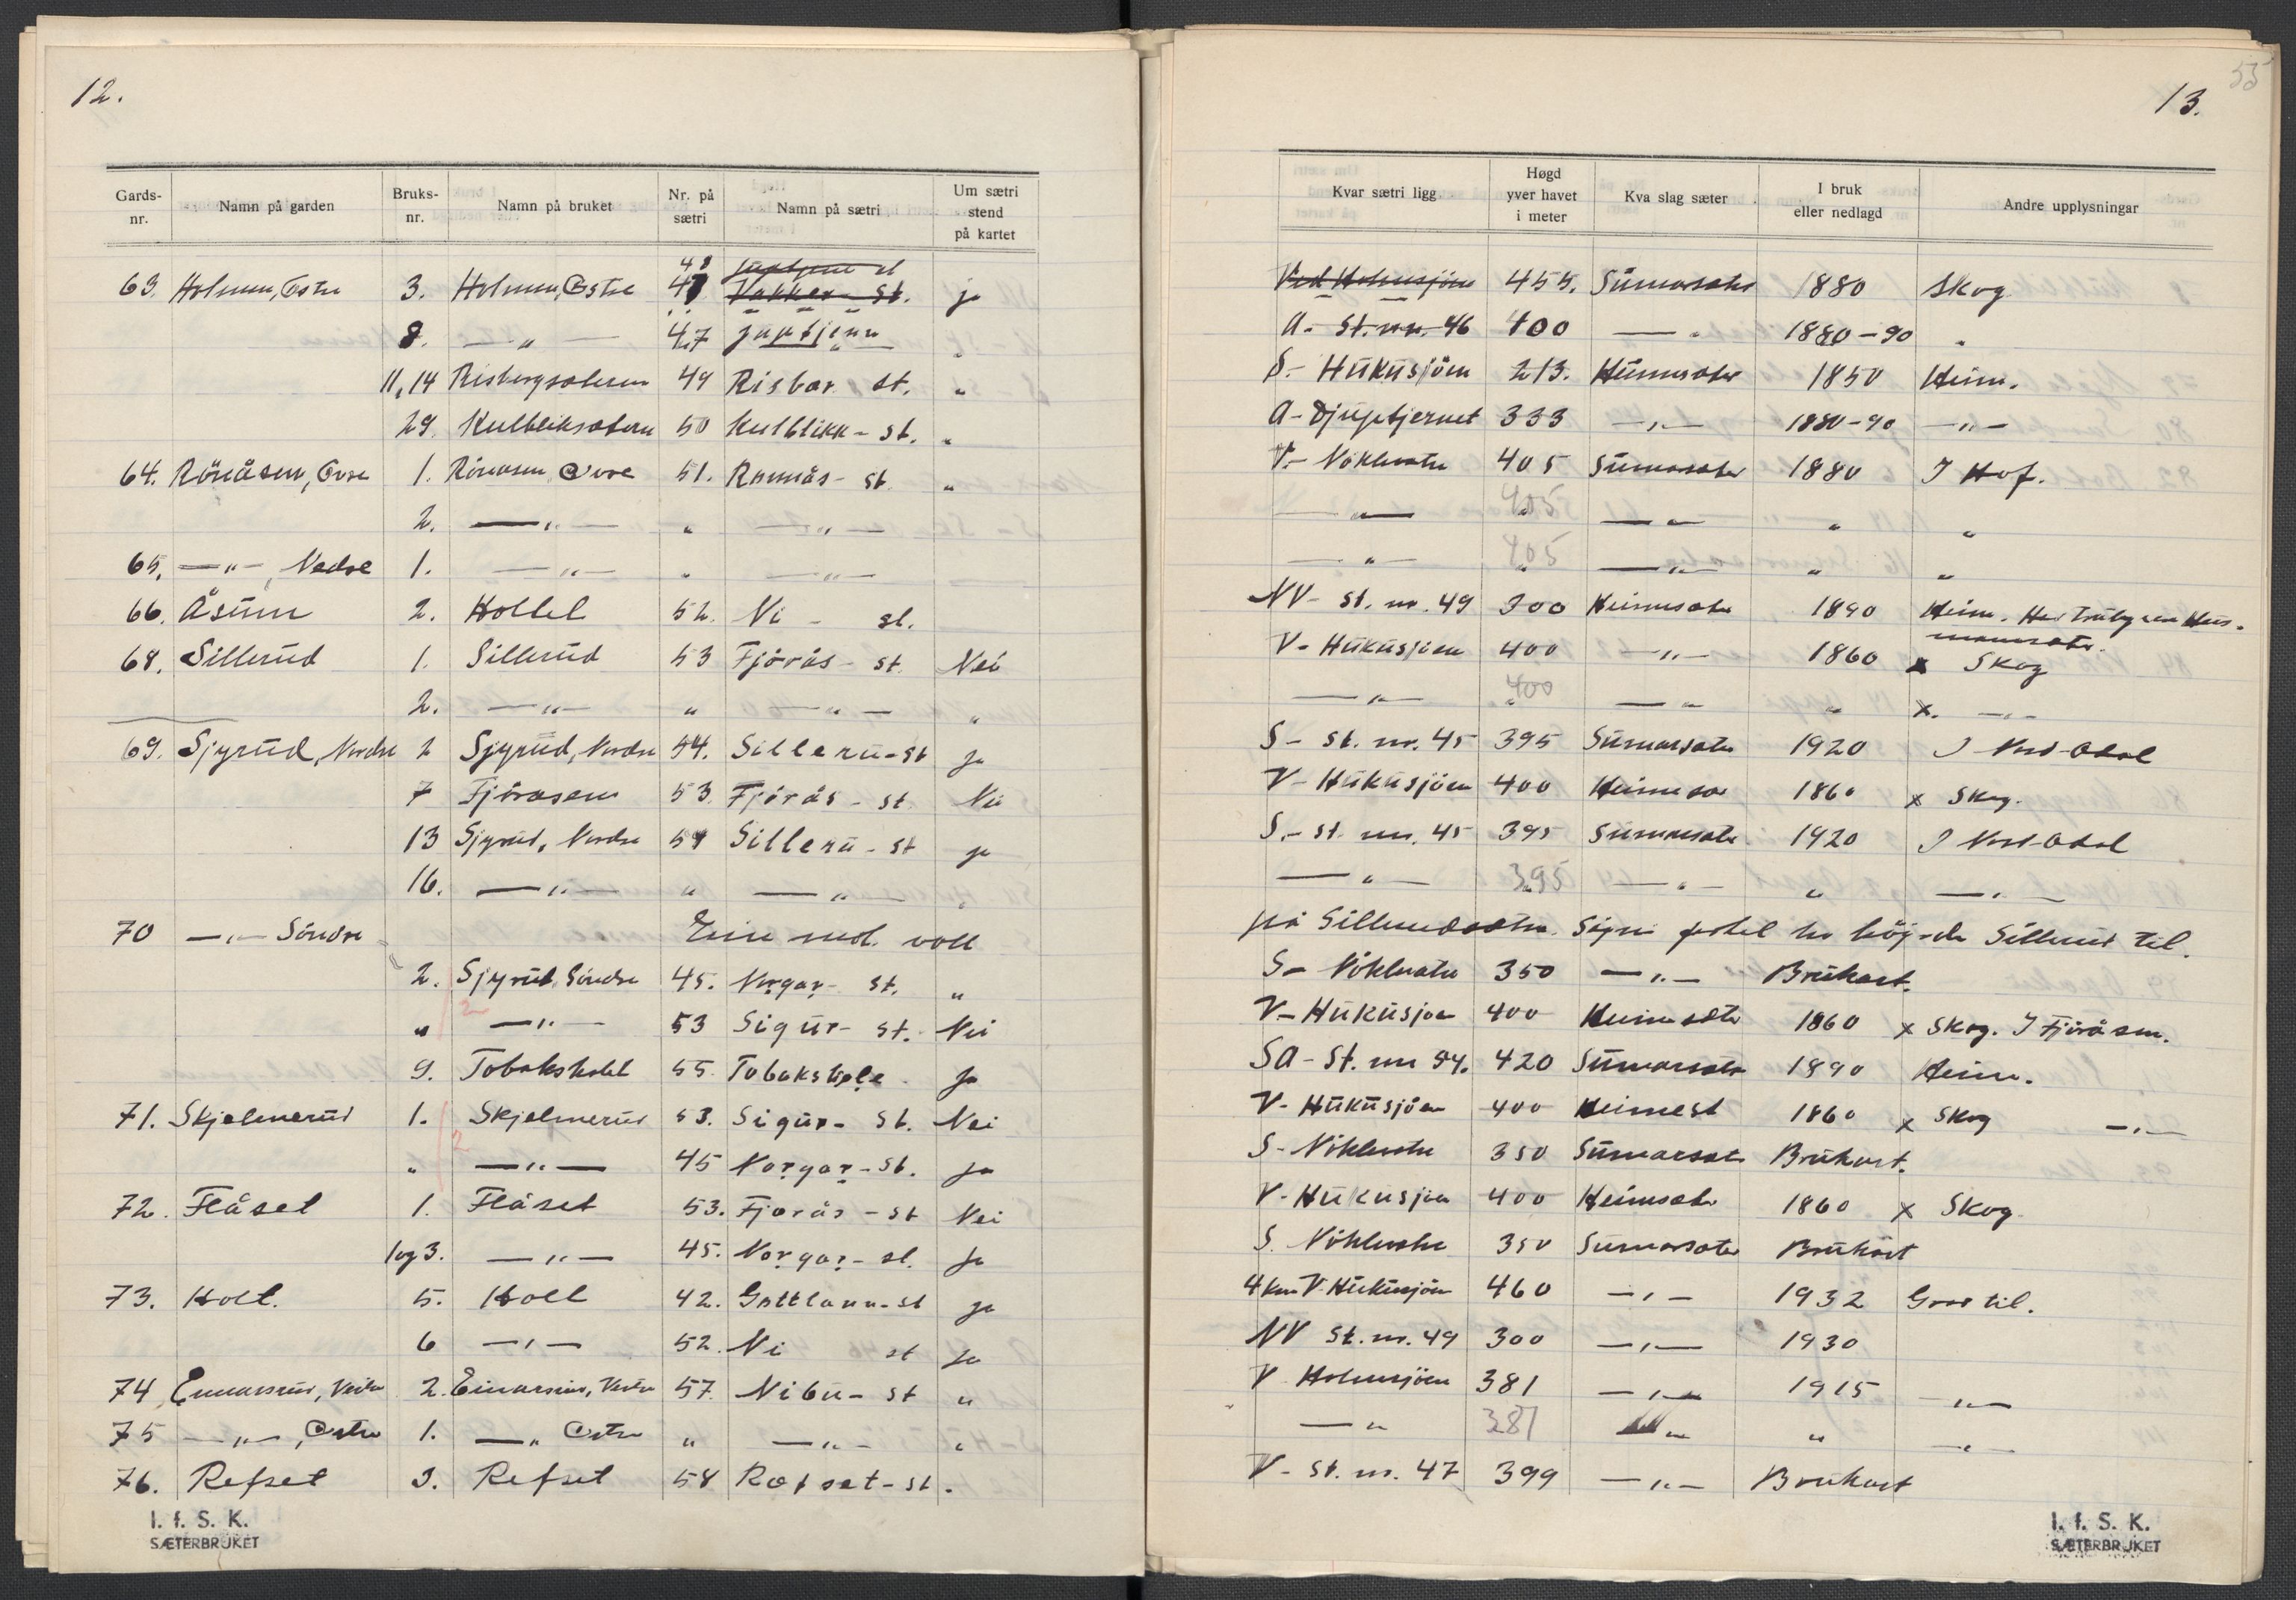 12.
Gards-nr. Namn på garden Bruks-nr. Namn på bruket Nr. på sætri Namn på sætri Um sætri stend på kartet
48
63. Holmen, Østre 3. Holmen, Østre 47. Vakker- st. ja
8. —"— 47 Juptjenn "
11, 14 Risbergsæteren 49 Risbør st. "
29. Kulbliksætern 50 Kulblikk- st. "
64. Rönåsen, Øvre 1. Rönåsen Øvre 51. Rönnås- st. "
2. —"— " —"—
65. —"—, Nedre 1. —"— " —"—
66. Åsum 2. Holtet 52. Ni - st.
68. Sillerud 1. Sillerud 53 Fjørås- st. Nei
2. —"— " —"— "
69. Sjyrud, Nordre 2 Sjyrud, Nordre 54. Silleru-st ja
7 Fjöråsen 53. Fjörås- st. Nei
13 Sjyrud, Nordre 54 Silleru- st ja
16. —"— " —"— "
70 —"— Söndre Ein voll
2. Sjyrud Söndre 45. Norgar- st. "
" —"— 53 Sigur- st. Nei
9. Tobaksholet 55. Tobakshole ja
71. Skjelmerud 1. Skjelmerud 53. Sigur- st. Nei
" —"— 45 Norgar-st. ja
72. Flåset 1. Flåset 53. Fjørås - st Nei
1 og 3. —"— 45. Norgar- st. ja
73. Holt. 5. Holt 42. Gottlaun-st ja
6 —"— 52. Ni st ja
74 Einarsrud, Vestre 2. Einarsrud, Vestre 57. Nibu- st "
75 —"—, Østre 1. —"— Østre " —"— "
76. Refset 3. Refset 58 Ræfset-st.
I. f. S. K.
SÆTERBRUKET
55
13.
Kvar sætri ligg Høgd yver havet i meter Kva slag sæter I bruk eller nedlagd Andre upplysningar
Ved Holmsjöen 455. Sumarsæter 1880 Skog
A.- St. nr. 46 400 —"— 1880-90 "
S.- Hukusjöen 213. Heimsæter 1850 Heim.
A- Djuptjernet 333 —"— 1880-90 —"—
V.- Nöklevatn 405 Sumarsæter 1880 I Hof.
—"— 405 —"— " "
—"— 405 —"— " "
NV- st. nr. 49 300 Heimsæter 1890 Heim. Hus-
mannsæter.
V- Hukusjøen 400 —"— 1860 x Skog
—"— 400 —"— " x. —"—
S- st. nr. 45 395 Sumarsæter 1920 I Nord-Odal
V- Hukusjöen 400 Heimesæ 1860 x Skog.
S.- st. nr. 45 395 Sumarsæter 1920 I Nord-Odal
—"— 395 —"— " —"—
på Sillerudsætra. Sillerud til.
S- Nöklevatn 350 —"— Brukast.
V- Hukusjøen 400 Heimsæter 1860 x Skog. I Fjöråsen.
SA- St. nr 54. 420 Sumarsæter 1890 Heim.
V- Hukusjöen 400 Heimest 1860 x Skog —"—
S- Nöklevatn 350 Sumarsæter Brukast.
V- Hukusjøen 400 Heimsæter 1860 x Skog
S. Nöklevatn 350 Sumarsæter Brukast
4 km V- Hukusjöen 460 —"— 1932 Gror til.
NV st. nr. 49 300 —"— 1930
V Holmsjöen 381 —"— 1915 —"—
—"— 381 " " —"—
V- St. nr. 47 399 —"— Brukast
I. f. S. K.
SÆTERBRUKET